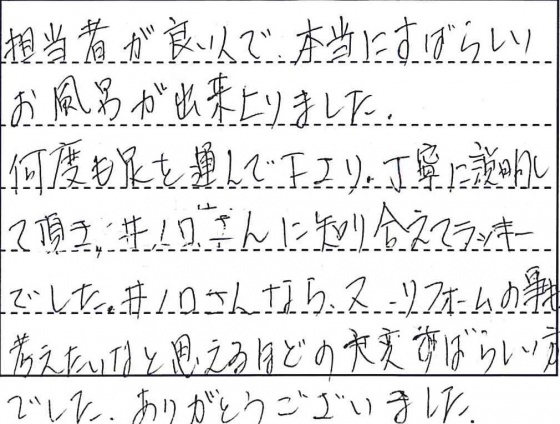 担当者が良い人で、本当にすばらしい
お風呂が出来上りました.
何度も足を運んで下さり。丁寧に説明し
て頂き,井ノ口さんに知り合えてラッキー
でした。井ノ口さんなら、又リフォームの事
考えたいなと思えるほどの大変すばらしい方
でした.ありがとうございました.